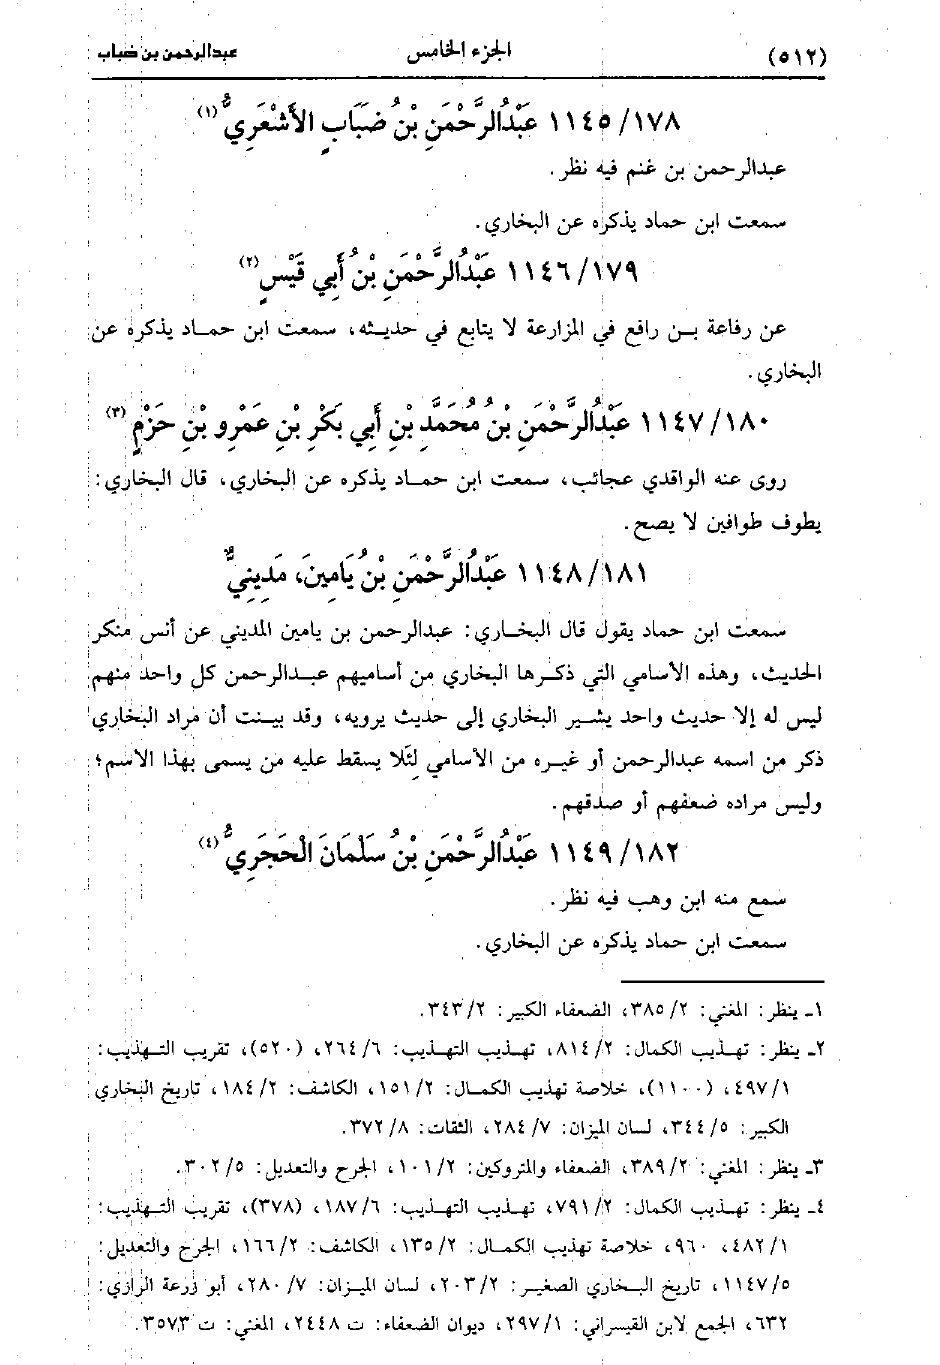 (٥١٢) الجزء الخامس عبدالرحمن بن ضباب
١١٤٥/١٧٨ عَبْدُالرَّحْمَنِ بْنُ ضَبَابٍ الأَشْعَرِيُّ (١)
عبدالرحمن بن غنم فيه نظر.
سمعت ابن حماد يذكره عن البخاري.
١١٤٦/١٧٩ عَبْدُالرَّحْمَنِ بْنُ أَبِي قَيْسٍ (٢)
عن رفاعة بن رافع في المزارعة لا يتابع في حديثه، سمعت ابن حماد يذكره عن
البخاري.
١١٤٧/١٨٠ عَبْدُالرَّحْمَنِ بْنُ مُحَمَّدِ بْنِ أَبِي بَكْرِ بْنِ عَمْرِو بْنِ حَزْمٍ (٣)
روى عنه الواقدي عجائب، سمعت ابن حماد يذكره عن البخاري، قال البخاري:
يطوف طوافين لا يصح.
١١٤٨/١٨١ عَبْدُالرَّحْمَنِ بْنُ يَامِينَ، مَدِينِيٌّ
سمعت ابن حماد يقول قال البخاري: عبدالرحمن بن يامين المديني عن أنس منكر
الحديث، وهذه الأسامي التي ذكرها البخاري من أساميهم عبدالرحمن كل واحد منهم
ليس له إلا حديث واحد يشير البخاري إلى حديث يرويه، وقد بينت أن مراد البخاري
ذكر من اسمه عبدالرحمن أو غيره من الأسامي لِئَلا يسقط عليه من يسمى بهذا الاسم؛
وليس مراده ضعفهم أو صدقهم.
١١٤٩/١٨٢ عَبْدُالرَّحْمَنِ بْنُ سَلْمَانَ الْحَجَرِيُّ (٤)
سمع منه ابن وهب فيه نظر.
سمعت ابن حماد يذكره عن البخاري.
١ـ ينظر: المغني: ٣٨٥/٢، الضعفاء الكبير: ٣٤٣/٢.
٢ـ ينظر: تهذيب الكمال: ٨١٤/٢، تهذيب التهذيب: ٢٦٤/٦، (٥٢٠)، تقريب التهذيب:
٤٩٧/١، (١١٠٠)، خلاصة تهذيب الكمال: ١٥١/٢، الكاشف: ١٨٤/٢، تاريخ البخاري
الكبير: ٣٤٤/٥، لسان الميزان: ٢٨٤/٧، الثقات: ٣٧٢/٨.
٣ـ ينظر: المغني: ٣٨٩/٢، الضعفاء والمتروكين: ١٠١/٢، الجرح والتعديل: ٣٠٢/٥.
٤ـ ينظر: تهذيب الكمال: ٧٩١/٢، تهذيب التهذيب: ١٨٧/٦، (٣٧٨)، تقريب التهذيب:
٤٨٢/١، ٩٦٠، خلاصة تهذيب الكمال: ١٣٥/٢، الكاشف: ١٦٦/٢، الجرح والتعديل:
١١٤٧/٥، تاريخ البخاري الصغير: ٢٠٣/٢، لسان الميزان: ٢٨٠/٧، أبو زرعة الرازي:
٦٣٢، الجمع لابن القيسراني: ٢٩٧/١، ديوان الضعفاء: ت ٢٤٤٨، المغني: ت ٣٥٧٣.